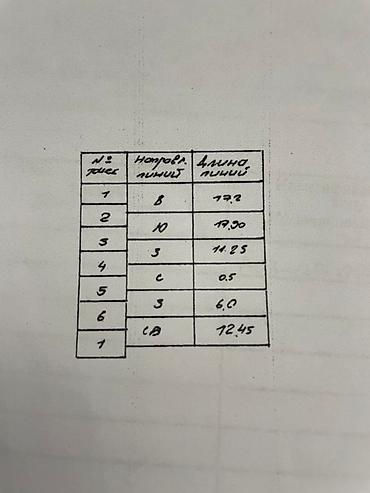 № точек Направл. линий Длина линий
1
В 17.2
2
Ю 17.90
3
З 11.25
4
С 0.5
5
З 6,0
6
СВ 12.45
1